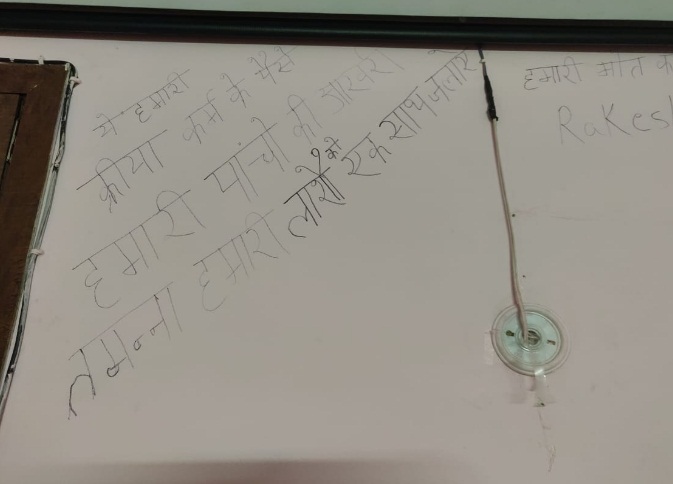 ये हमारी
क्रीया कर्म के पैसे
हमारी पांचो की आखरी
तमन्ना हमारी लाशों को एक साथ जलाऐ
हमारी मौत क
Rakesh